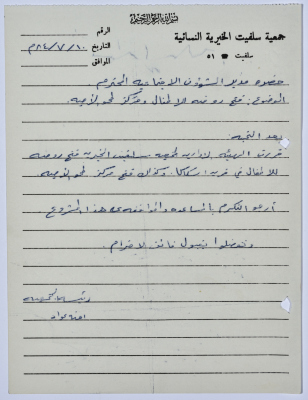 بسم الله الرحمن الرحيم
جمعية سلفيت الخيرية النسائية
سلفيت ☎ ٥١
الرقم
التاريخ ١٠/٧/٨٤م
الموافق
حضرة مدير الشؤون الاجتماعية المحترم
الموضوع: فتح روضة الأطفال ومركز محو الأمية.
بعد التحية:
قررت الهيئة الادارية لجمعية سلفيت الخيرية فتح روضة
للأطفال في قرية اسكاكا. وكذلك فتح مركز محو الأمية.
أرجو التكرم بالمساعدة والموافقة على هذا المشروع
وتفضلوا بقبول فائق الاحترام.
رئيسة الجمعية